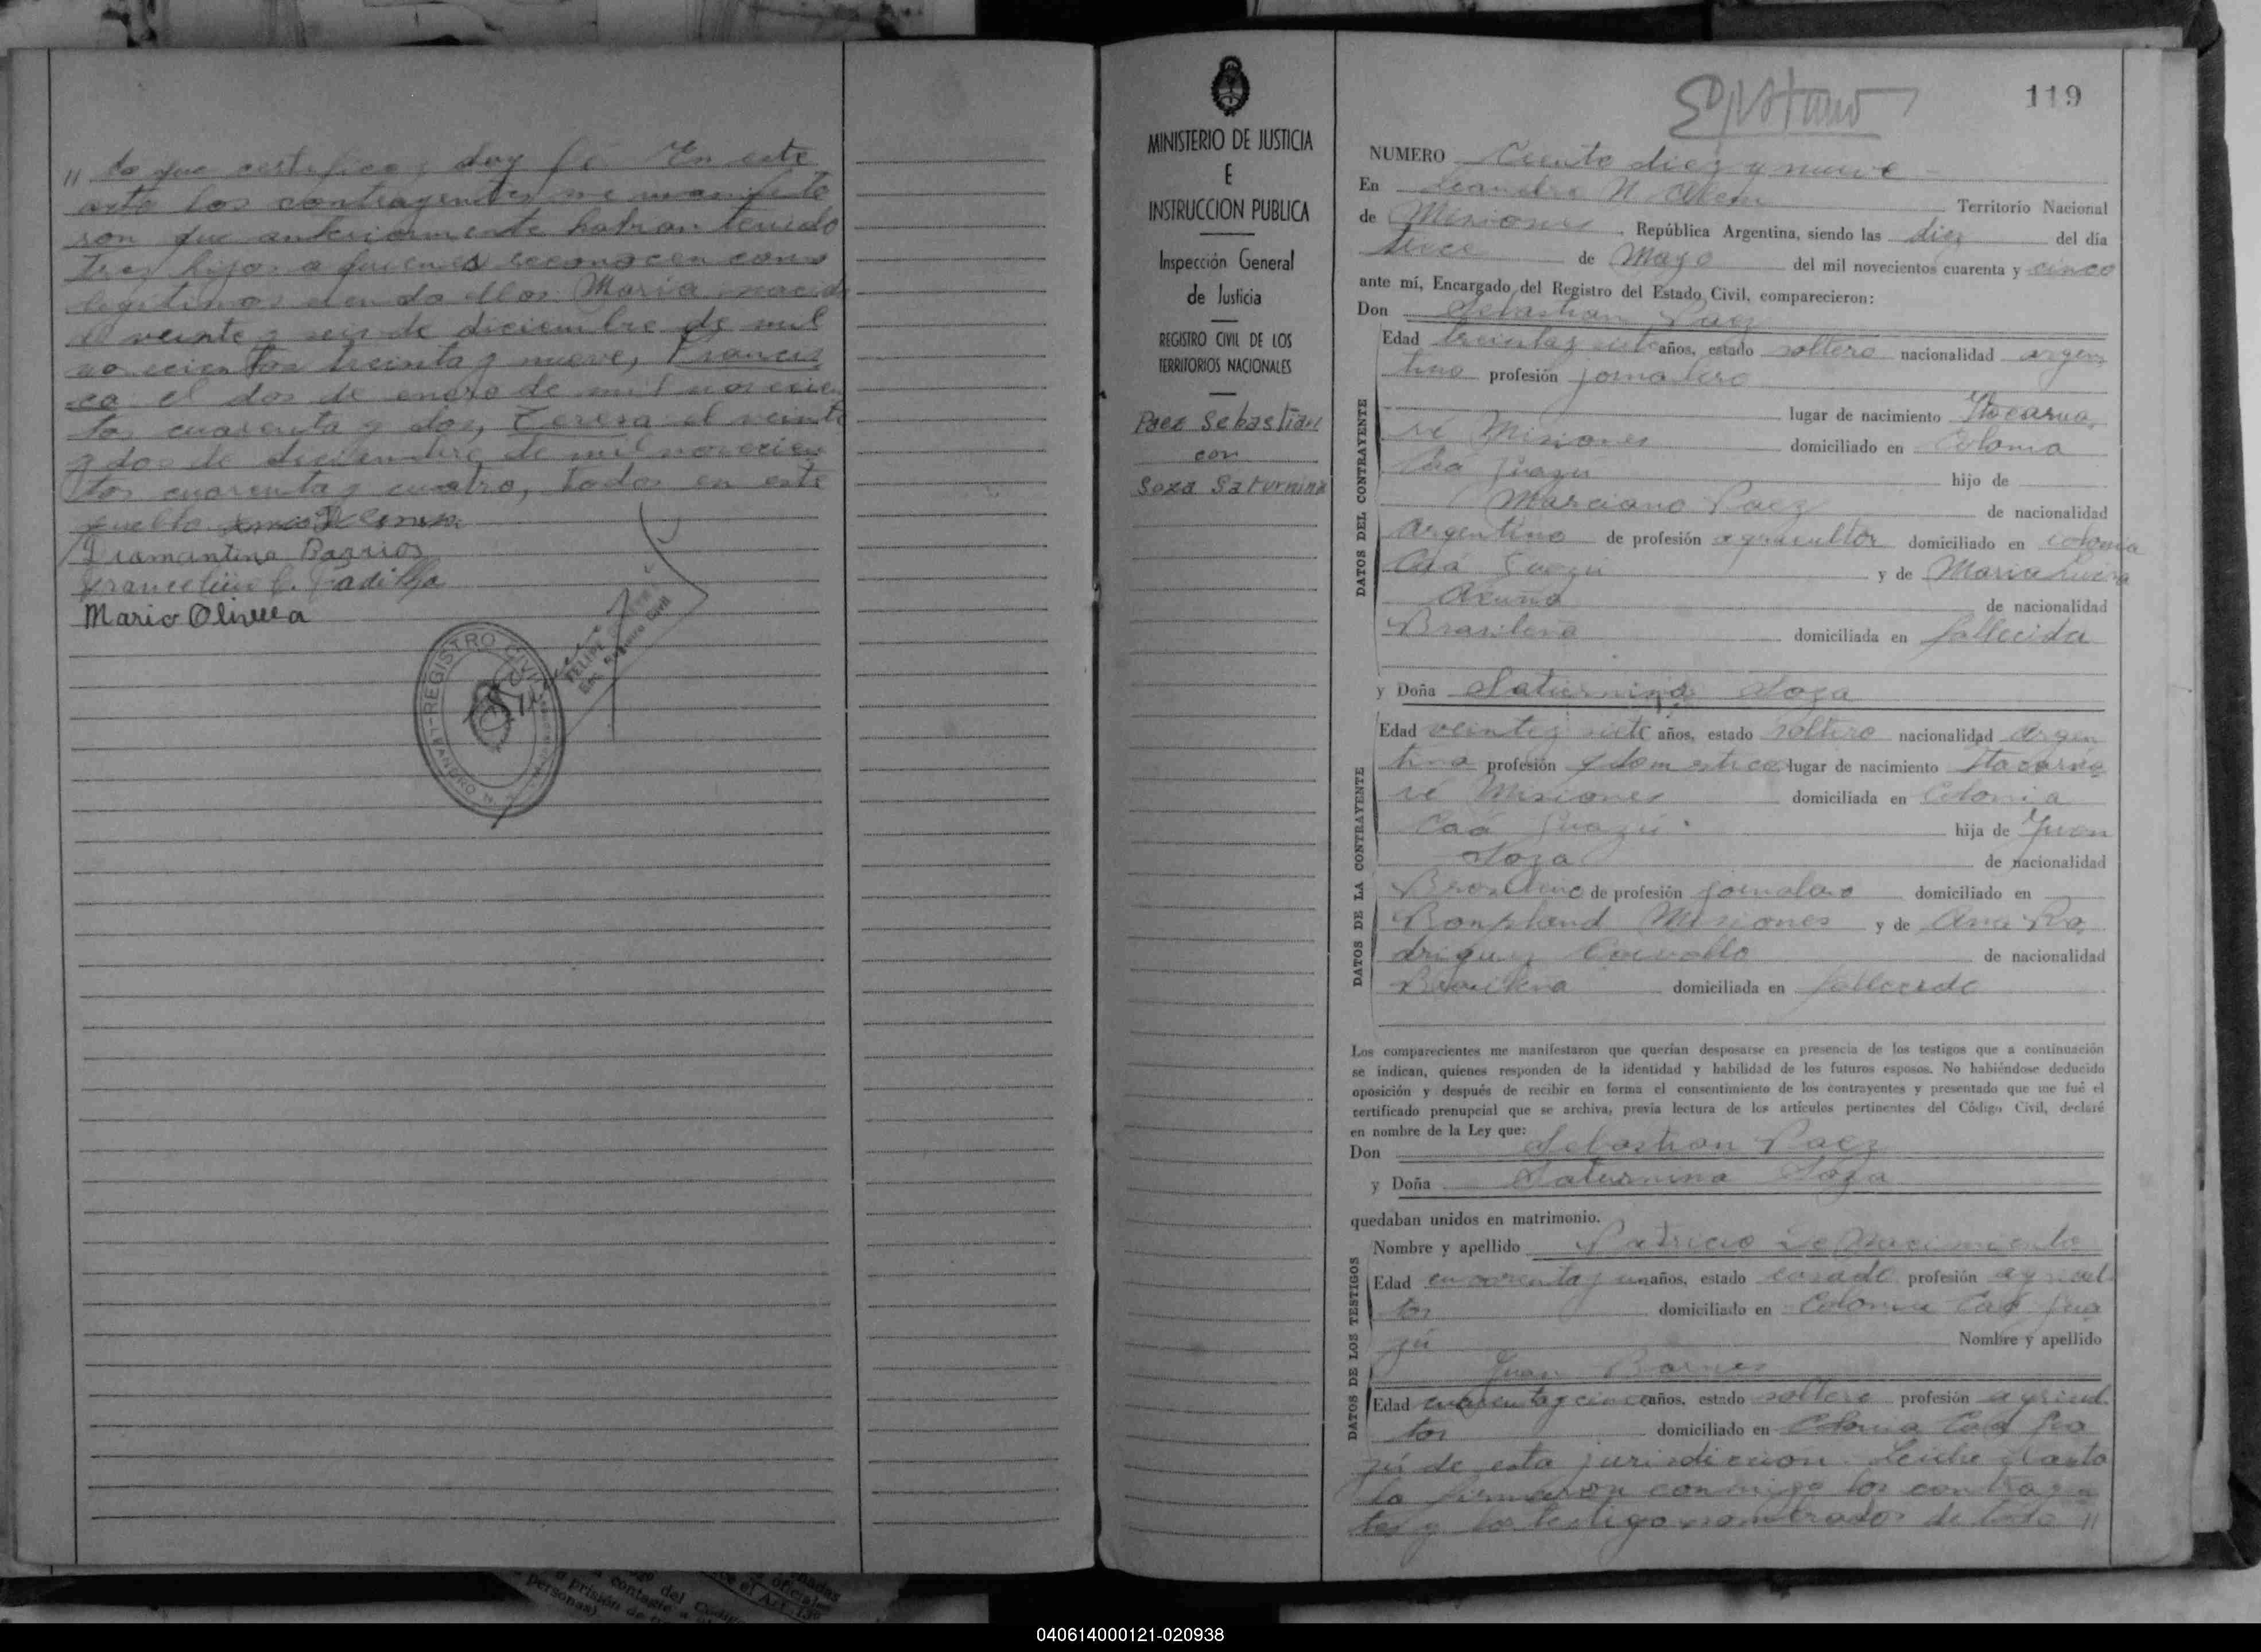 " lo que certifico y doy fé. En este
acto los contrayentes me manifesta
ron que anteriormente habían tenido
tres hijos a quienes reconocen como
legítimos siendo ellos María nacida
el veinte y seis de diciembre de mil
novecientos treinta y nueve, Francis
ca el dos de enero de mil novecien
tos cuarenta y dos, Teresa el veinte
y dos de diciembre de mil novecien
tos cuarenta y cuatro, todos en este
pueblo
Diamantina Barrios
Padilla
Mario Olivera
REGISTRO CIVIL
MINISTERIO DE JUSTICIA
E
INSTRUCCION PUBLICA
Inspección General
de Justicia
REGISTRO CIVIL DE LOS
TERRITORIOS NACIONALES
Paez Sebastian
con
Soza Saturnina
119
NUMERO Ciento diez y nueve
En Leandro N. Alem Territorio Nacional
de Misiones, República Argentina, siendo las diez del día
trece de Mayo del mil novecientos cuarenta y cinco
ante mí, Encargado del Registro del Estado Civil, comparecieron:
Don Sebastian Paez
DATOS DEL CONTRAYENTE
Edad treinta y siete años, estado soltero nacionalidad argen
tino profesión jornalero
lugar de nacimiento Itacarua
ré Misiones domiciliado en Colonia
Caa Guazu hijo de
Marciano Paez de nacionalidad
Argentino de profesión agricultor domiciliado en colonia
Caá Guazu y de Maria Luisa
Acuña de nacionalidad
Brasilera domiciliada en fallecida
y Doña Saturnina Soza
DATOS DE LA CONTRAYENTE
Edad veinte y siete años, estado soltera nacionalidad Argen
tina profesión domestica lugar de nacimiento Itacarua
ré Misiones domiciliada en Colonia
Caá Guazú hija de Juan
Soza de nacionalidad
Brasilero de profesión jornalero domiciliado en
Bonpland Misiones y de Ana Ro
driguez Carvallo de nacionalidad
Brasilera domiciliada en fallecida
Los comparecientes me manifestaron que querían desposarse en presencia de los testigos que a continuación
se indican, quienes responden de la identidad y habilidad de los futuros esposos. No habiéndose deducido
oposición y después de recibir en forma el consentimiento de los contrayentes y presentado que me fué el
certificado prenupcial que se archiva, previa lectura de los artículos pertinentes del Código Civil, declaré
en nombre de la Ley que:
Don Sebastian Paez
y Doña Saturnina Soza
quedaban unidos en matrimonio.
DATOS DE LOS TESTIGOS
Nombre y apellido Patricio de Nacimiento
Edad cuarenta y un años, estado casado profesión agricul
tor domiciliado en Colonia Caá Gua
zú Nombre y apellido
Juan Barnes
Edad cuarenta y cinco años, estado soltero profesión agricul
tor domiciliado en Colonia Caá Gua
zú de esta jurisdiccion. Leida el acta
la firmaron conmigo los contrayen
tes y los testigos nombrados de todo "
040614000121-020938